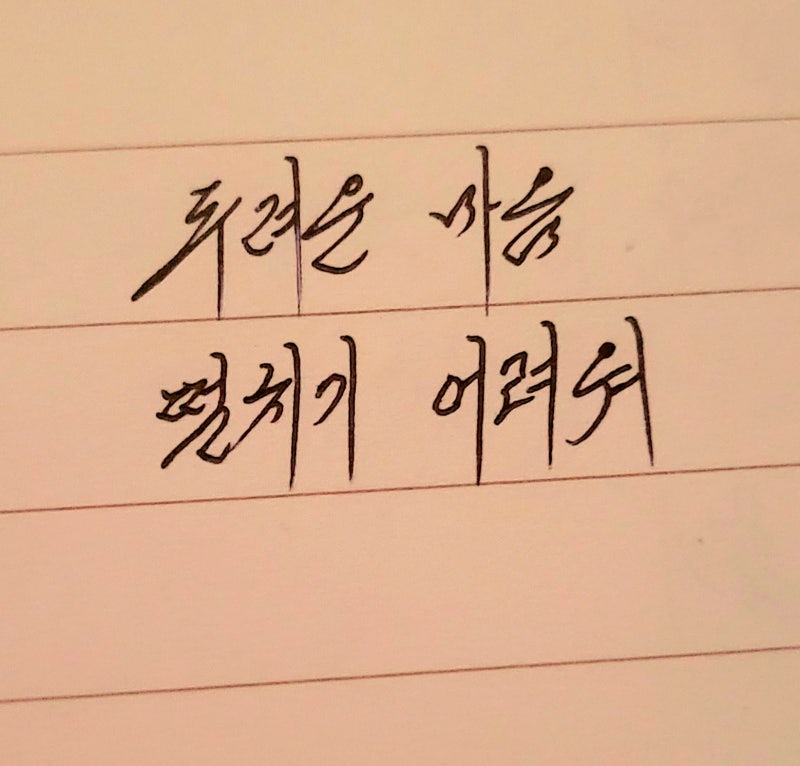 두려운 마음
떨치기 어려워